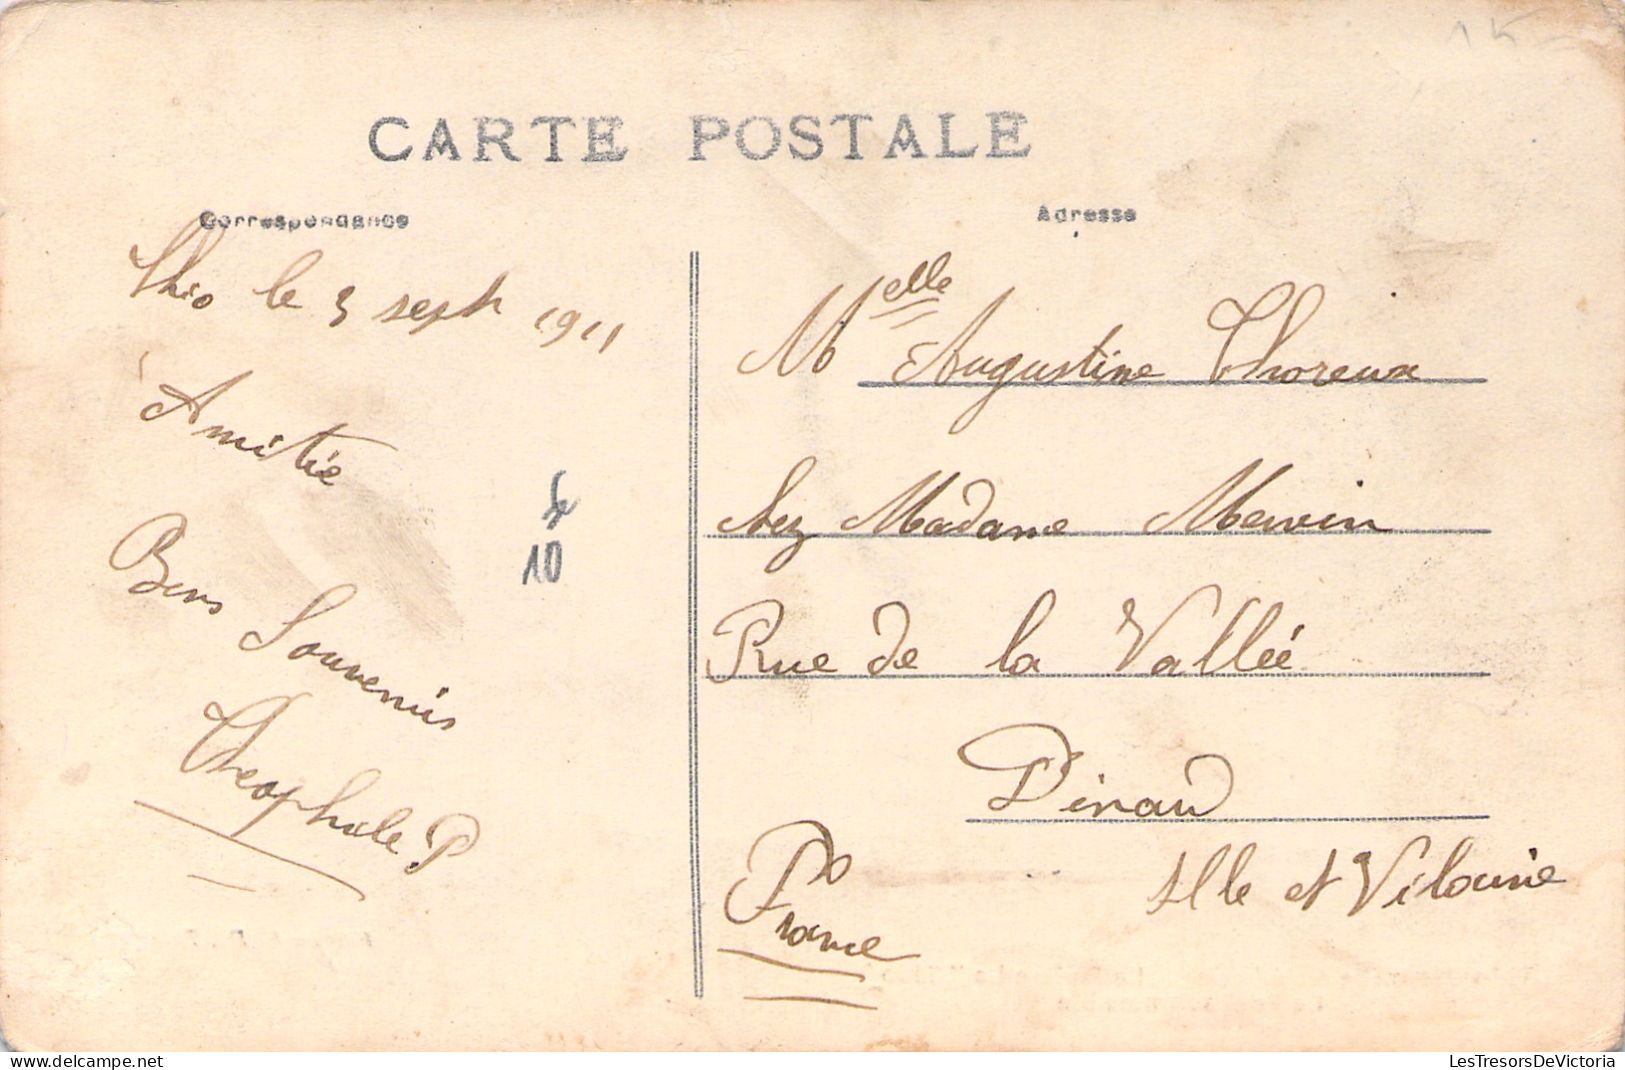 CARTE POSTALE
Correspondance
Adresse
Thio le 3 sept 1911
Amitié
Bons Souvenirs
Théophile P
10
Melle Augustine Thoreux
chez Madame
Rue de la Vallée
Dinard
Ille et Vilaine
France
LesTresorsDeVictoria